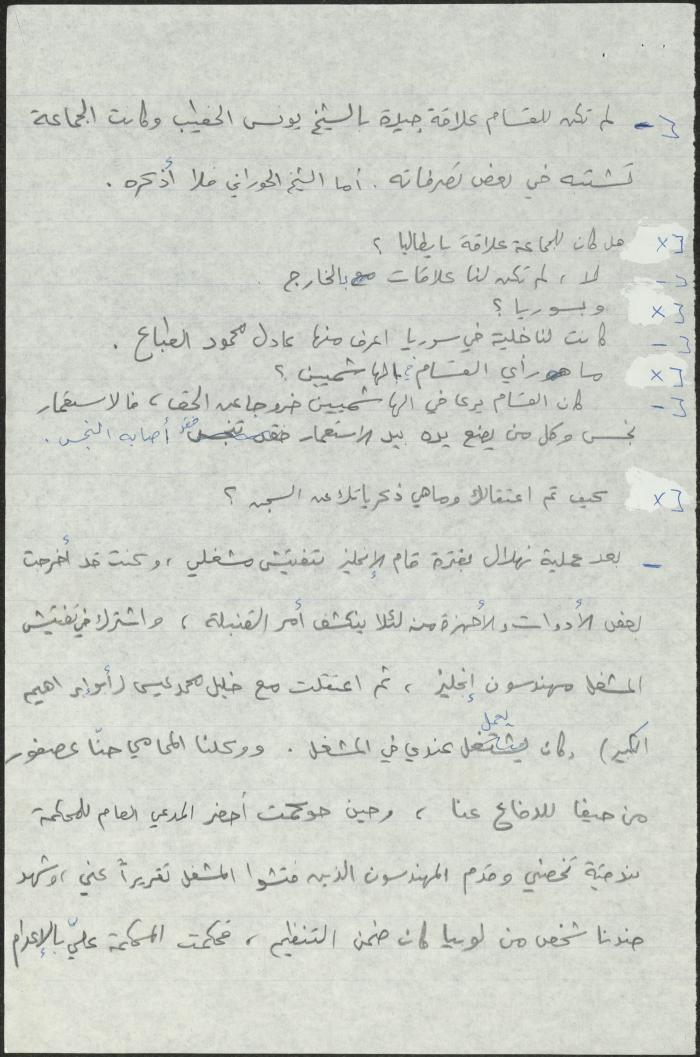 [- لم تكن للقسام علاقة جيدة بالشيخ يونس الخطيب وكانت الجماعة
تشتبه في بعض تصرفاته . أما الشيخ الحوراني فلا أذكره .
[x هل كان للجماعة علاقة بايطاليا ؟
[- لا ، لم تكن لنا علاقات بالخارج .
[x وبسوريا ؟
[- كانت لنا خلية في سوريا اعرف منها عادل محمود الطباع .
[x ما هو رأي القسام في الهاشميين ؟
[- كان القسام يرى في الهاشميين خروجا عن الحق ، فالاستعمار
نجس وكل من يضع يده بيد الاستعمار فقد أصابه النجس .
[x كيف تم اعتقالك وماهي ذكرياتك عن السجن ؟
- بعد عملية نهلال بفترة قام الإنجليز بتفتيش مشغلي ، وكنت قد أخرجت
بعض الأدوات والأجهزة منه لئلا ينكشف أمر القنبلة ، واشترك في تفتيش
المشغل مهندسون إنجليز ، ثم اعتقلت مع خليل محمد عيسى (أبو ابراهيم
الكبير) وكان يعمل عندي في المشغل . ووكلنا المحامي حنّا عصفور
من حيفا للدفاع عنا ، وحين حوكمت أحضر المدعي العام للمحكمة
تخصني وقدم المهندسون الذين فتشوا المشغل تقريراً عني ، وشهد
ضدنا شخص من لوبيا كان ضمن التنظيم ، فحكمت المحكمة عليّ بالإعدام